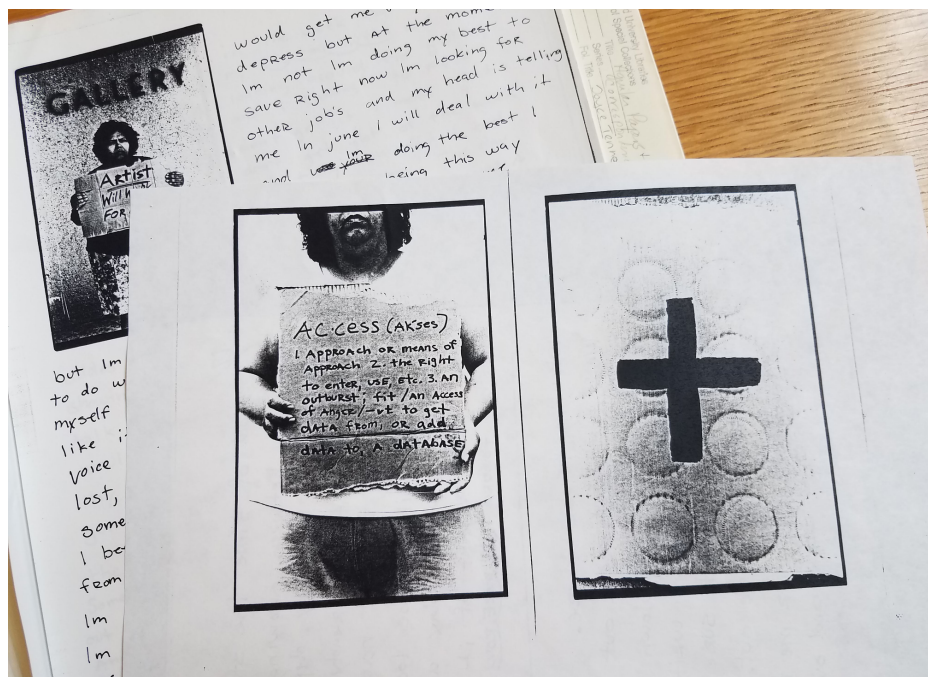 GALLERY
Artist
Will
FOR
would get me
depress but at the mome
Im not Im doing my best to
save Right now Im looking for
other job's and my head is telling
me In june I will deal with it
and Im doing the best I
being this way
but Im
to do w
myself
like i
voice
lost,
some
I be
from
Im
Im
AC·cess (AK'ses)
1. Approach or means of
Approach 2. the Right
to enter, use, etc. 3. An
outburst; fit/An Access
of Anger/-vt to get
dATA from, or add
dATA to A dATABASE